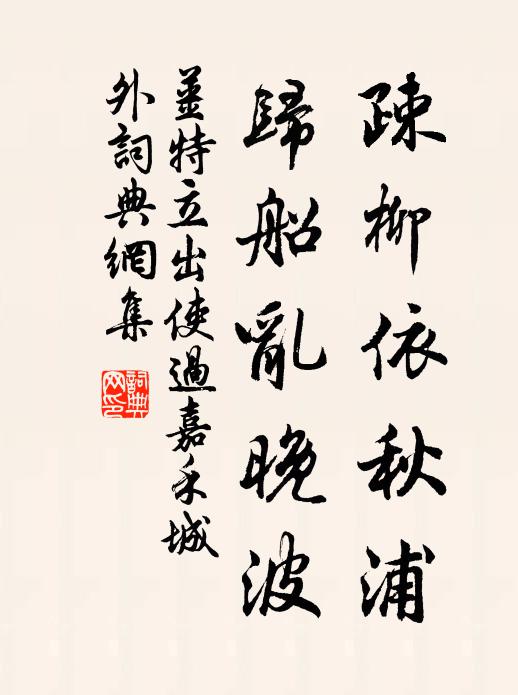 疎柳依秋浦
歸船亂晚波
姜特立出使過嘉禾城
外詞典網集
詞典網印